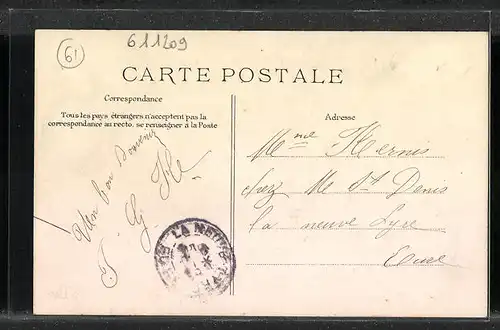 61
611209
CARTE POSTALE
Correspondance
Tous les pays étrangers n'acceptent pas la
correspondance au recto, se renseigner à la Poste
Un bon Souvenir
Adresse
Mme Hernis
chez Me St Denis
la neuve Lyre
Eure
LA NEUVE